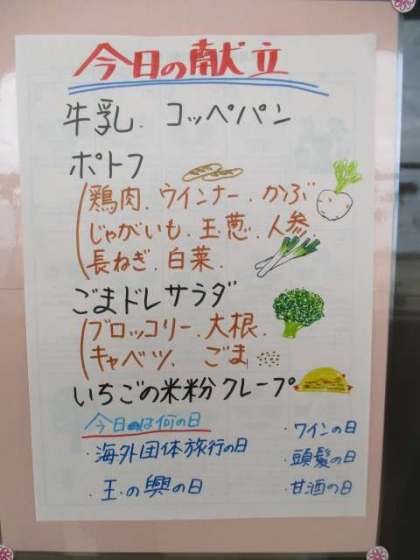 今日の献立
牛乳. コッペパン
ポトフ
(鶏肉.ウインナー.かぶ
じゃがいも.玉葱.人参.
長ねぎ.白菜.
ごまドレサラダ
(ブロッコリー.大根.
キャベツ. ごま
いちごの米粉クレープ
今日は何の日
・海外団体旅行の日
・玉の輿の日
・ワインの日
・頭髪の日
・甘酒の日